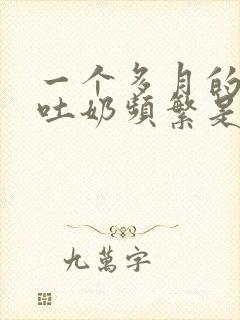 一个多月的
吐奶频繁是
九萬字